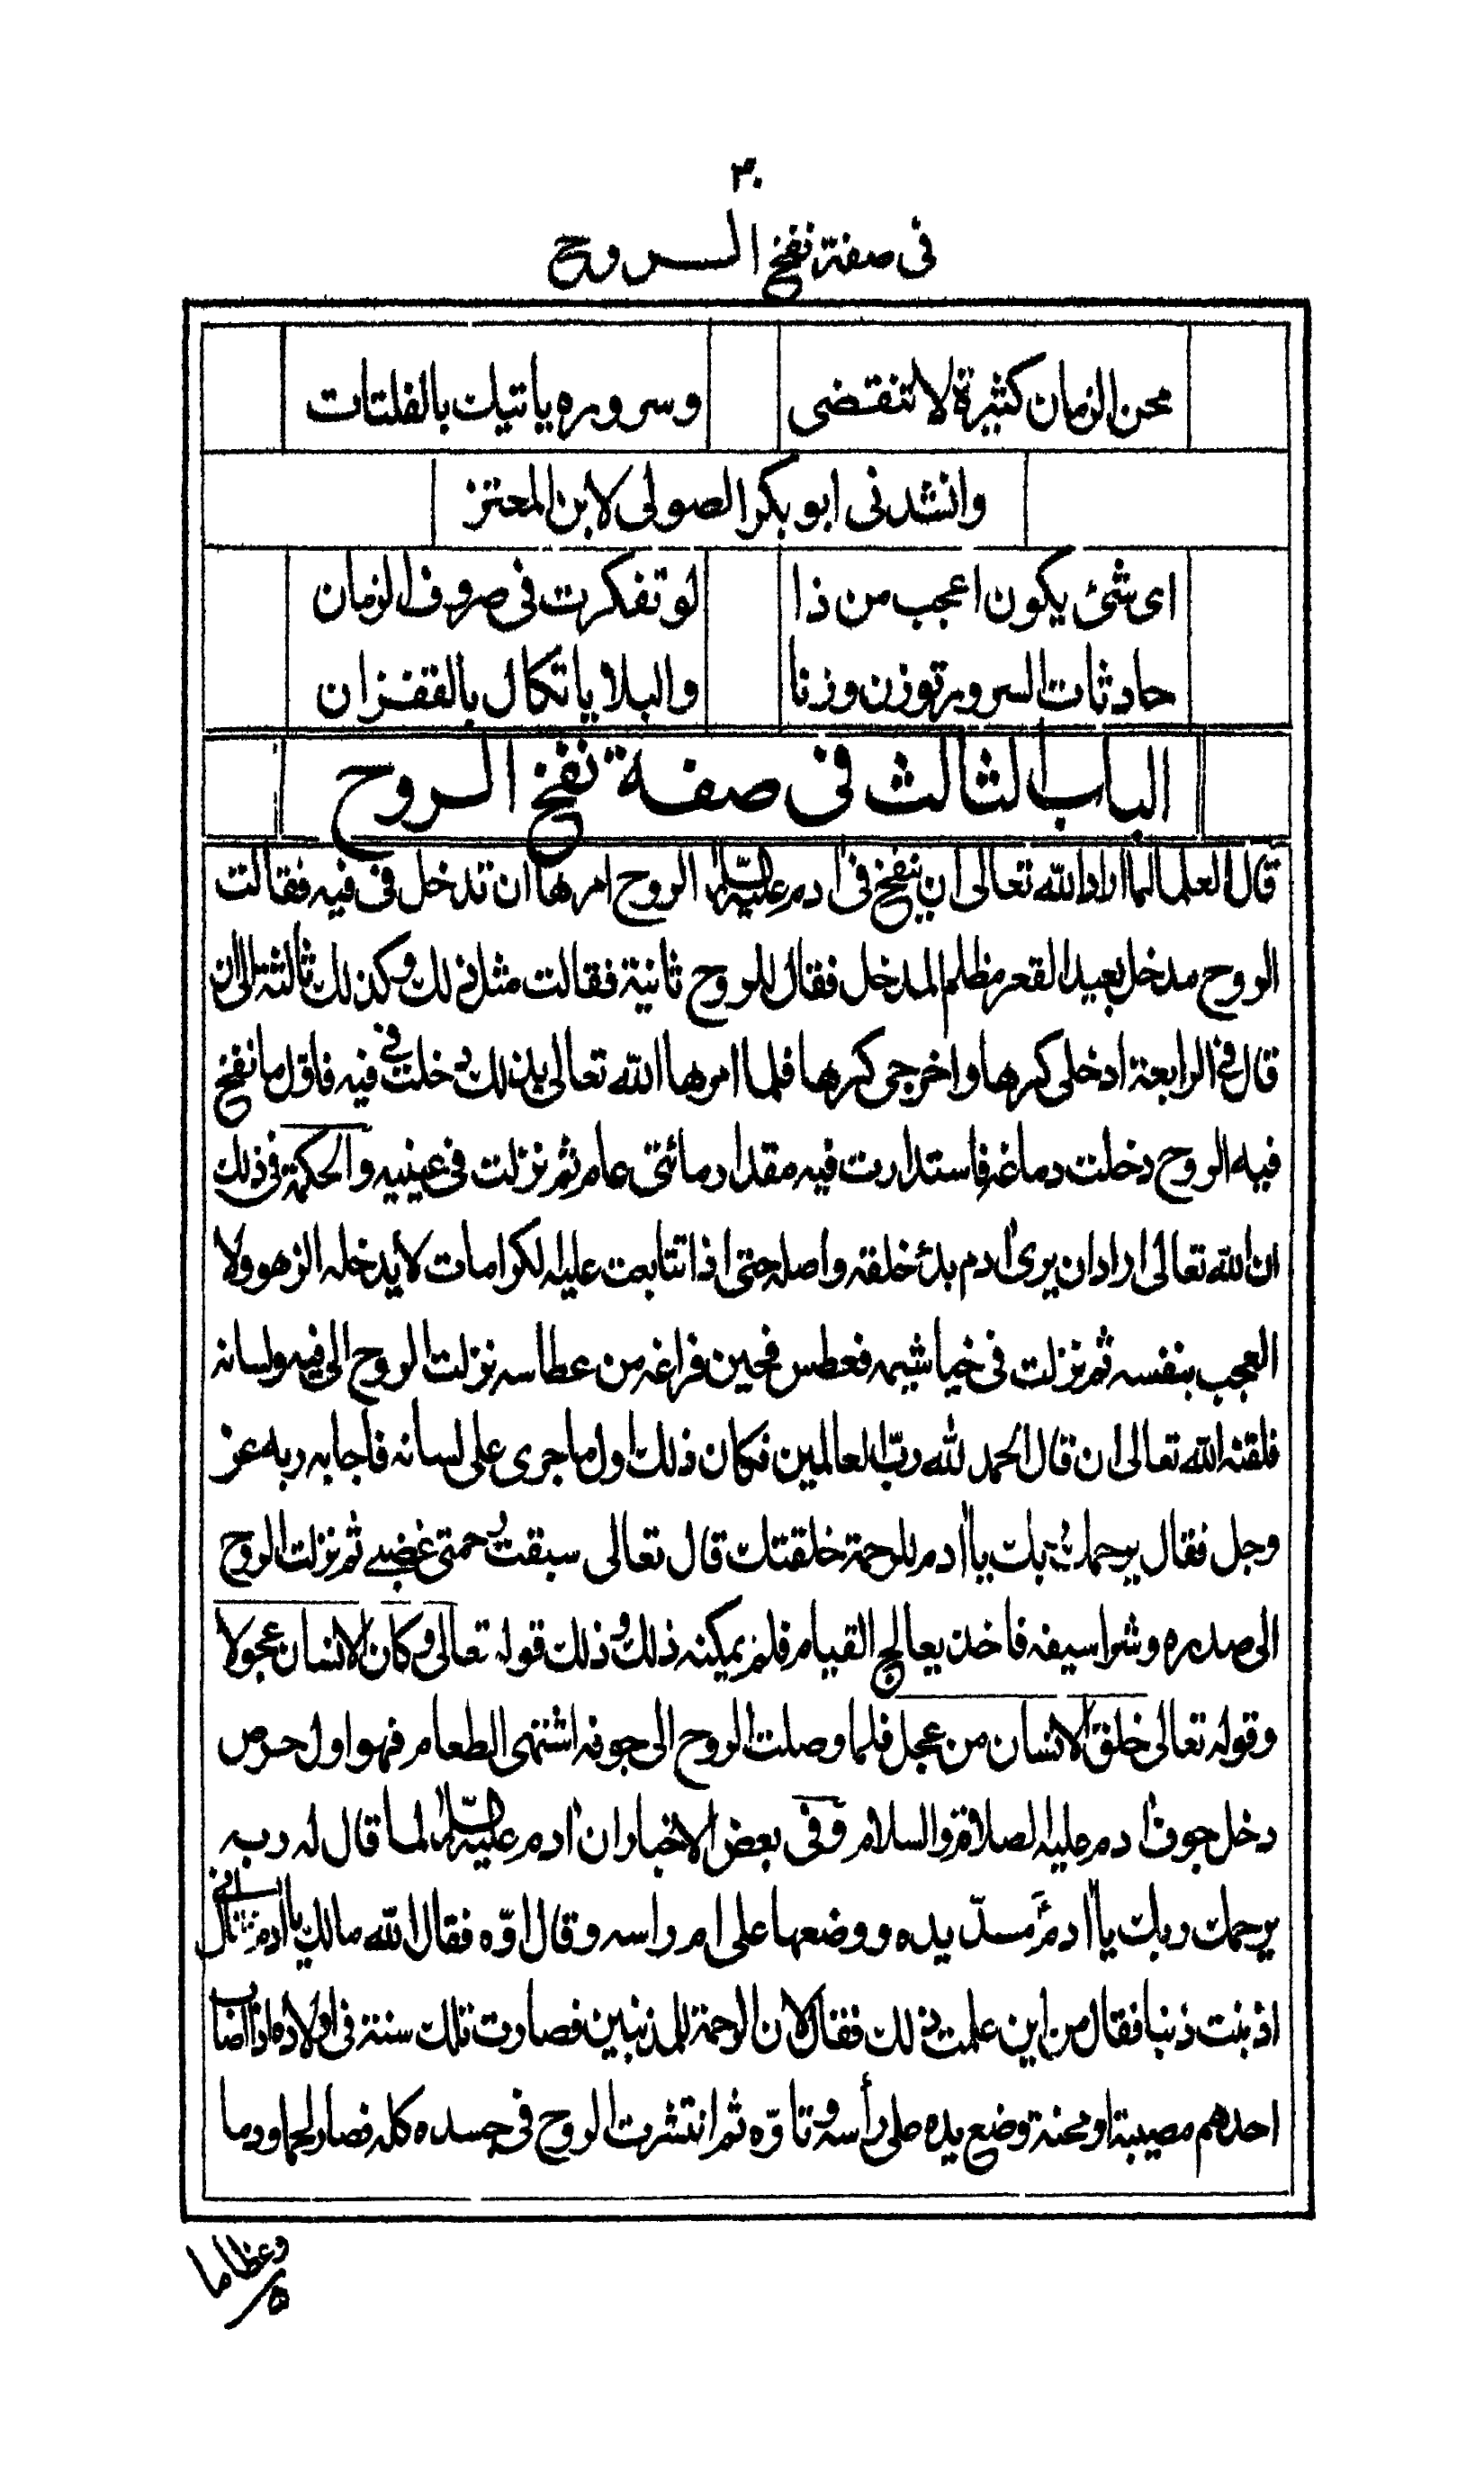 ٣٠
فى صفة نفخ الـــروح
محن الزمان كثيرة لا تنقضى وسروره ياتيك بالفلتات
وانشدنى ابو بكر الصولى لابن المعتز
اى شئ يكون اعجب من ذا لو تفكرت فى صروف الزمان
حادثات السرور توزن وزنا والبلا يا تكال بالقفزان
الباب الثالث فى صفة نفخ الـروح
قال العلما لما اراد الله تعالى ان ينفخ فى اٰدم عليه السلام الروح امرها ان تدخل فى فيه فقالت
الروح مدخل بعيد القعر مظلم المدخل فقال للروح ثانية فقالت مثل ذلك وكذلك ثالثة الى ان
قال فى الرابعة ادخلى كرها واخرجى كرها فلما امرها الله تعالى بذلك دخلت فى فيه فاول ما نفخ
فيه الروح دخلت دماغه فاستدارت فيه مقدار مائتى عام ثم نزلت فى عينيه والحكمة فى ذلك
ان الله تعالى اراد ان يرى اٰدم بدئ خلقه واصله حتى اذا تتابعت عليه الكرامات لا يدخله الزهو ولا
العجب بنفسه ثم نزلت فى خياشيمه فعطس فحين فراغه من عطاسه نزلت الروح الى فيه ولسانه
فلقنه الله تعالى ان قال الحمد لله ربّ العالمين فكان ذلك اول ما جرى على لسانه فاجابه ربه عز
وجل فقال يرحمك ربك يا اٰدم للرحمة خلقتك قال تعالى سبقت رحمتى غضبى ثم نزلت الروح
الى صدره وشراسيفه فاخذ يعالج القيام فلم يمكنه ذلك و ذلك قوله تعالى وكان الانسان عجولا
وقوله تعالى خلق الانسان من عجل فلما وصلت الروح الى جوفه اشتهى الطعام فهو اول حرص
دخل جوف اٰدم عليه الصلاة والسلام وفى بعض الاخبار ان اٰدم عليه السلام لما قال له ربه
يرحمك ربك يا اٰدم مدّ يده ووضعها على ام راسه وقال اوّه فقال الله مالك يا اٰدم قال انى
اذنبت ذنبا فقال من اين علمت ذلك فقال لان الرحمة للمذنبين فصارت تلك سنة فى اولاده اذا اصاب
احدهم مصيبة او محنة وضع يده على رأسه وتاوّه ثم انتشرت الروح فى جسده كله فصار لحما ودما
وعظاما